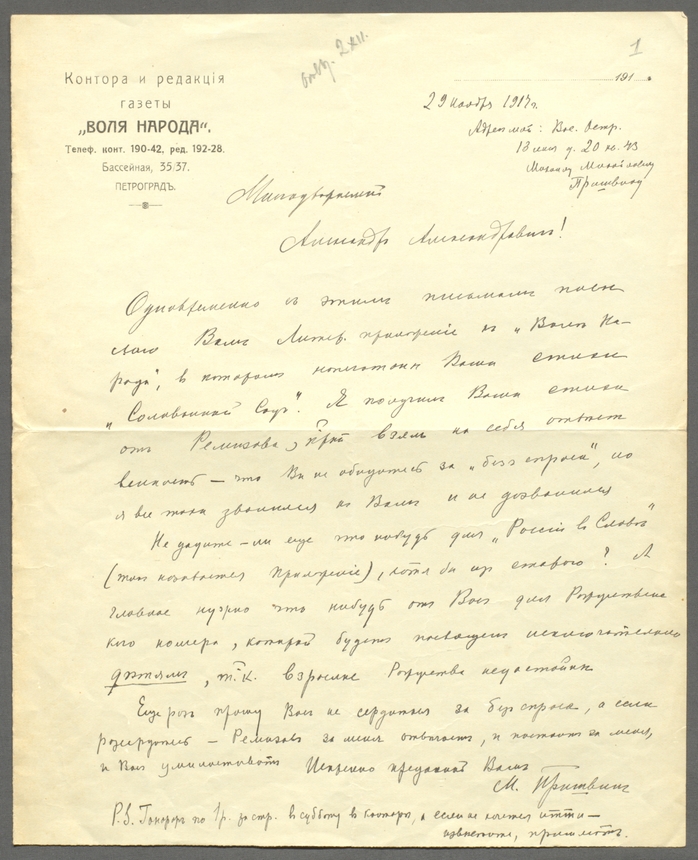 Контора и редакція
газеты
„ВОЛЯ НАРОДА“.
Телеф. конт. 190-42, ред. 192-28.
Бассейная, 35/37.
ПЕТРОГРАДЪ.
отв. 2 XII.
1
191 .
29 Ноября 1917 г.
Адрес мой: Вас. Остр.
13 линия д. 20 кв. 43
Михаилу Михайловичу
Пришвину
Многоуважаемый
Александр Александрович!
Одновременно с этим письмом посы-
лаю Вам Литер. приложение к „Воле На-
рода“, в котором напечатаны Ваши стихи
„Соловьиный Сад“. Я получил Ваши стихи
от Ремизова, взял на себя ответст
венность – что Вы не обидитесь за „без спроса“, но
я все таки звонился к Вам и не дозвонился
Не дадите-ли еще что нибудь для „Россия в Слове“
(так называется приложение), хотя бы из старого? А
главное нужно что нибудь от Вас для Рождественс
кого номера, который будет посвящен исключительно
детям, т.к. взрослые Рождества недостойны.
Еще раз прошу Вас не сердиться за без спроса, а если
рассердитесь – Ремизов за меня отвечает, и постоит за меня,
и Вас умилостивит Искренно преданный Вам
М. Пришвин
P.S. Гонорар по 1 р. за стр. в субботу в конторе, а если не хочется итти –
известите, пришлют.